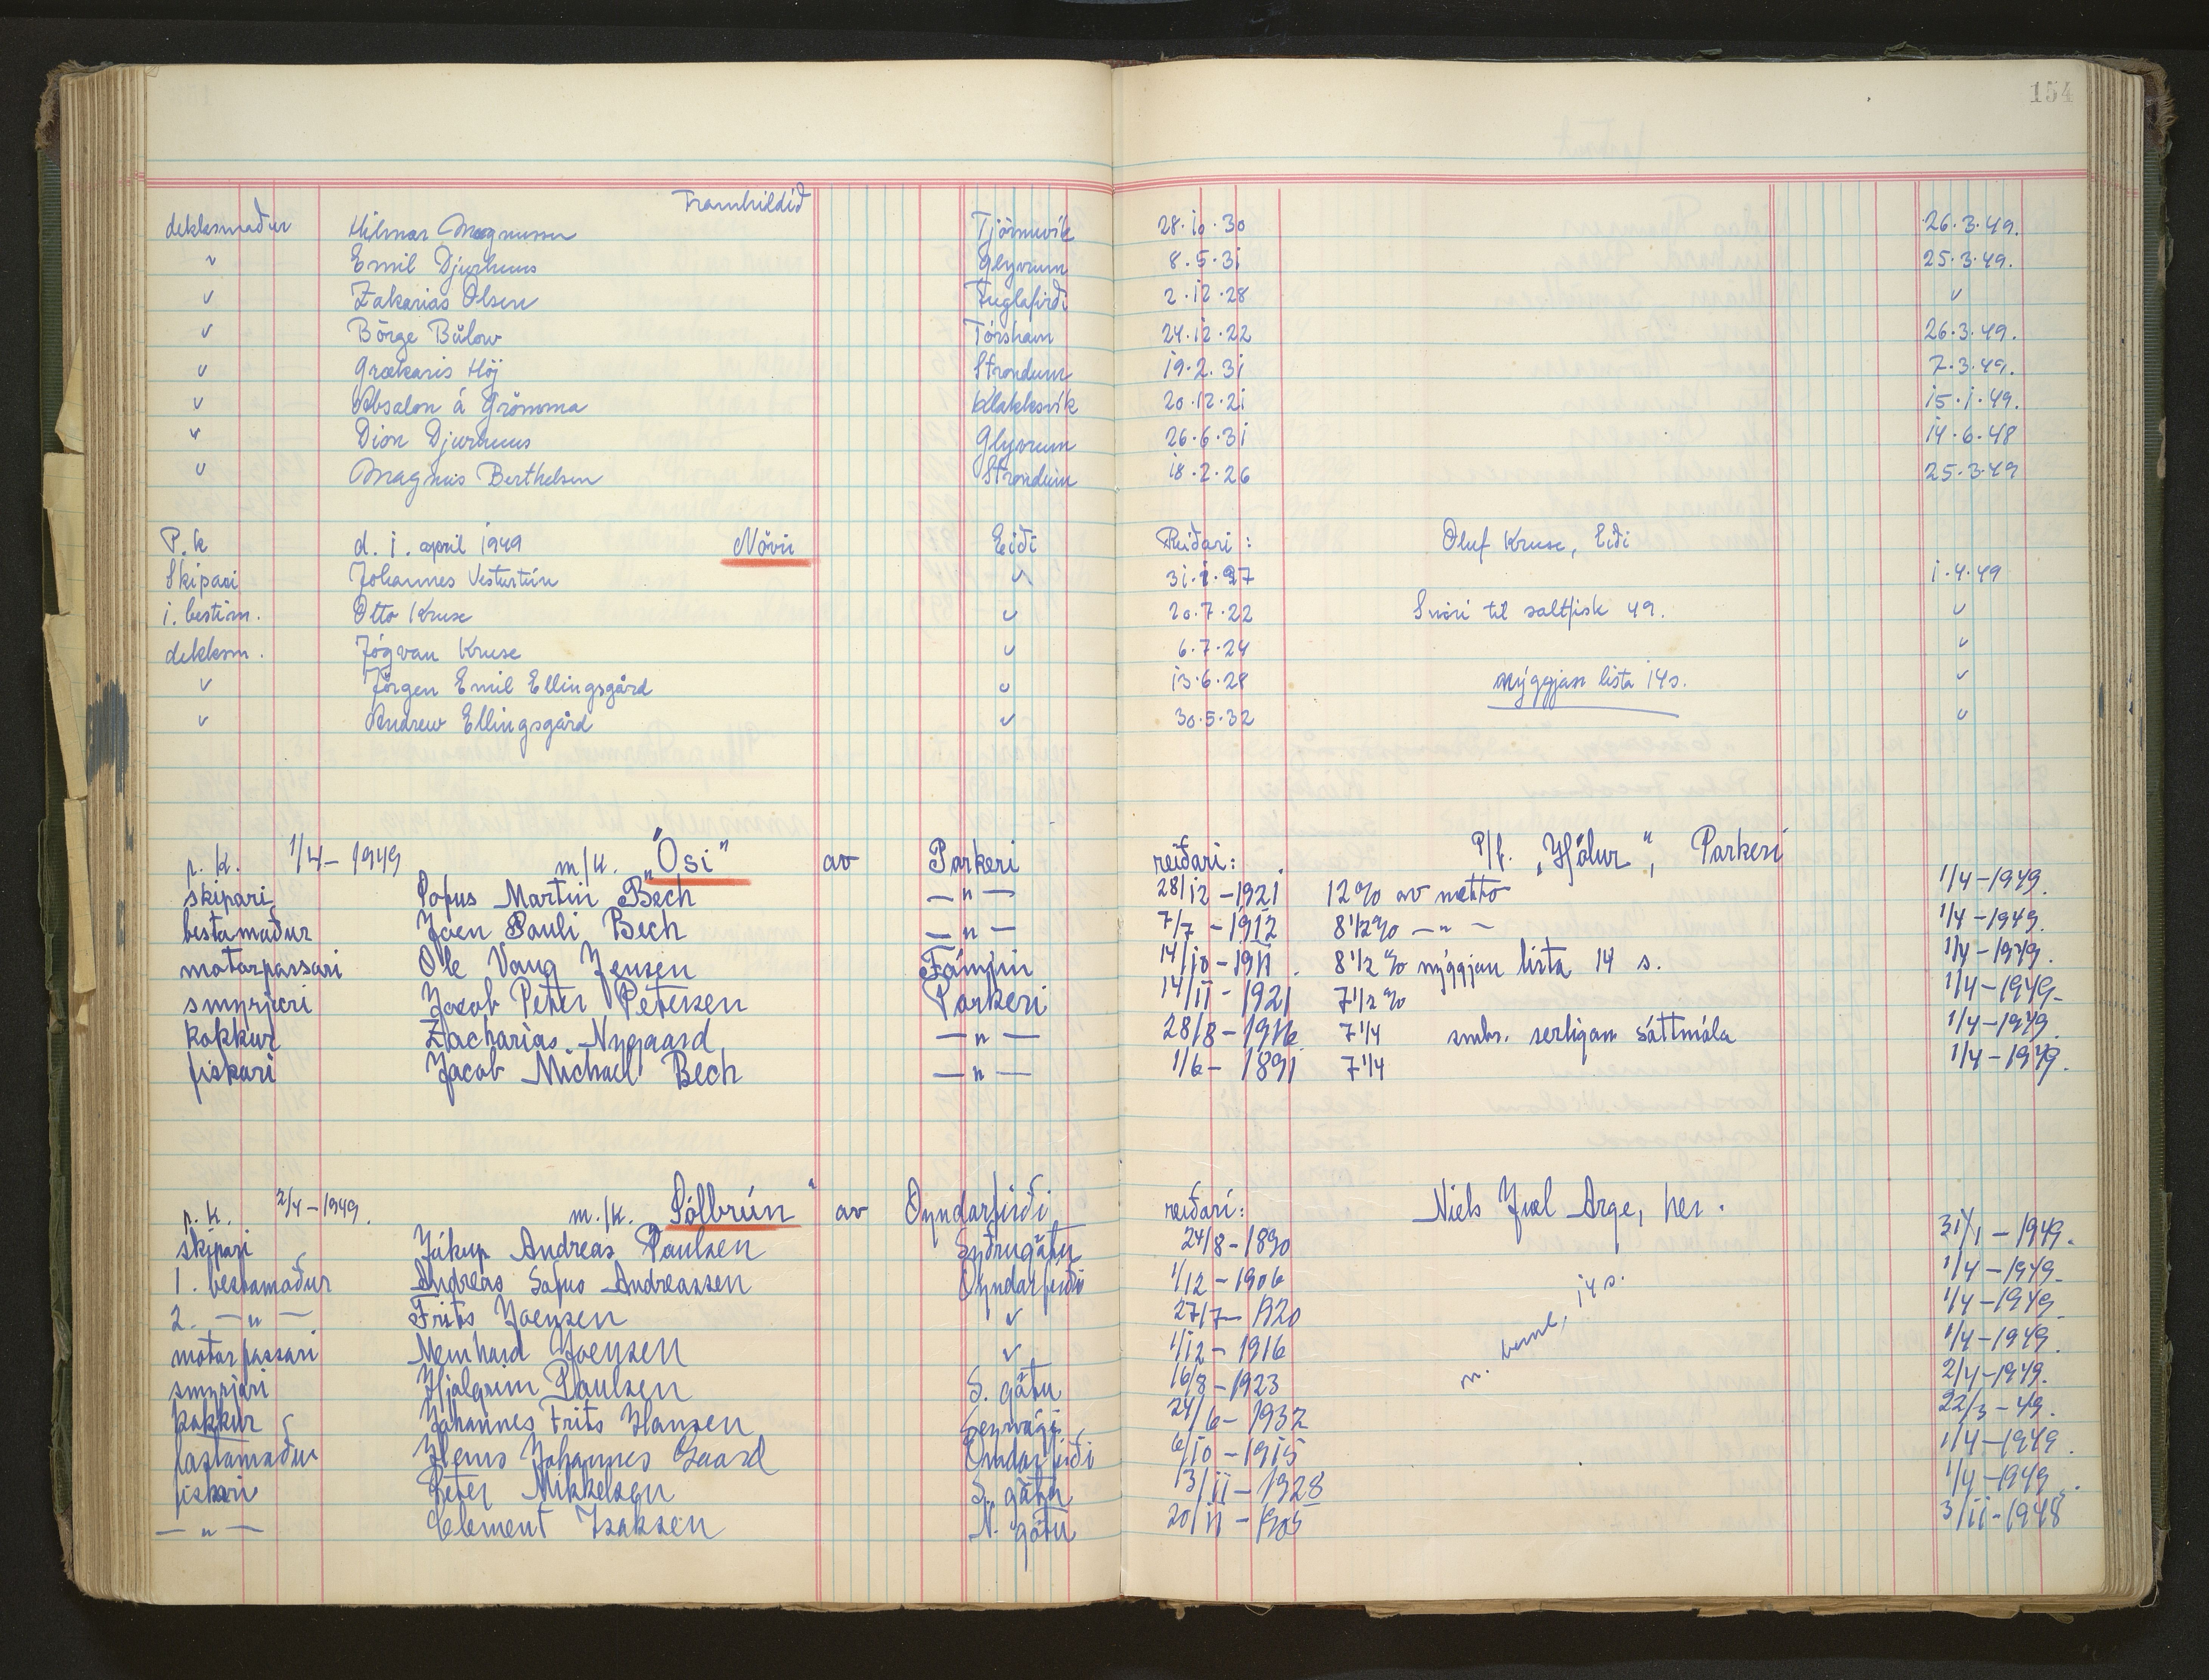 154
Framhildið
dekksmaður Hilmar Magnussen Tjörnuvík 28.10.30 26.3.49.
" Emil Djurhuus Glyvrum 8.5.31 25.3.49.
" Zakarias Olsen Fuglafirði 2.12.28 "
" Börge Bülow Tórshavn 24.12.22 26.3.49.
" Grækaris Höj Strondum 19.2.31 7.3.49.
" Absalon á Grömma Klakksvík 20.12.21 15.1.49.
" Dion Djurhuus Glyvrum 26.6.31 14.6.48
" Magnus Berthelsen Strondum 18.2.26 25.3.49
P.k d. 1. april 1949 Növii Eiði Reiðari: Oluf Kruse, Eiði
Skipari Johannes Vesturtún " 31.1.27 1.4.49
1. bestim. Otto Kruse " 20.7.22 Snöri til saltfisk 49. "
dekksm. Jógvan Kruse " 6.7.24 "
" Jörgen Emil Ellingsgård " 13.6.28 nýggjan lista 14 s. "
" Andrew Ellingsgård " 30.5.32 "
p. k. 1/4-1949 m/k. "Ósi" av Porkeri reiðari: P/f. "Hólur", Porkeri
skipari Popus Martin Bech —"— 28/12-1921 12% av netto 1/4-1949.
bestamaður Joen Pauli Bech —"— 7/7-1912 8 1/2% —"— 1/4-1949.
motorpassari Ole Vang Jensen Fámjin 14/10-1911. 8 1/2% nýggjan lista 14 s. 1/4-1949.
smyrjari Jacob Peter Petersen Porkeri 14/11-1921 7 1/2% 1/4-1949.
kokkur Zacharias Nygaard —"— 28/8-1916 7 1/4 smbr. serligan sáttmála 1/4-1949.
fiskari Jacob Michael Bech —"— 1/6-1891 7 1/4 1/4-1949.
p. k. 2/4-1949. m./k. Sólbrún" av Oyndarfirði reiðari: Niels Juel Arge, her.
skipari Jákup Andreas Paulsen Syðrugötu 24/8-1890 31/1-1949.
1. bestamaður Andreas Sofus Andreassen Oyndarfirði 1/12-1906 1/4-1949.
2. —"— Frits Joensen " 27/7-1920 1/4-1949.
motorpassari Meinhard Joensen " 1/12-1916 1/4-1949.
smyrjari Hjalgrim Paulsen S. götu 16/8-1923 2/4-1949.
kokkur Johannes Frits Hansen 24/6-1932 22/3-49.
lastamaður Hans Johannes Gaard Oyndarfirði 6/10-1915 1/4-1949.
fiskari Peter Mikkelsen S. götu 13/11-1928 1/4-1949.
—"— Clement Isaksen N. götu 20/11-1905 3/11-1948
14 s.